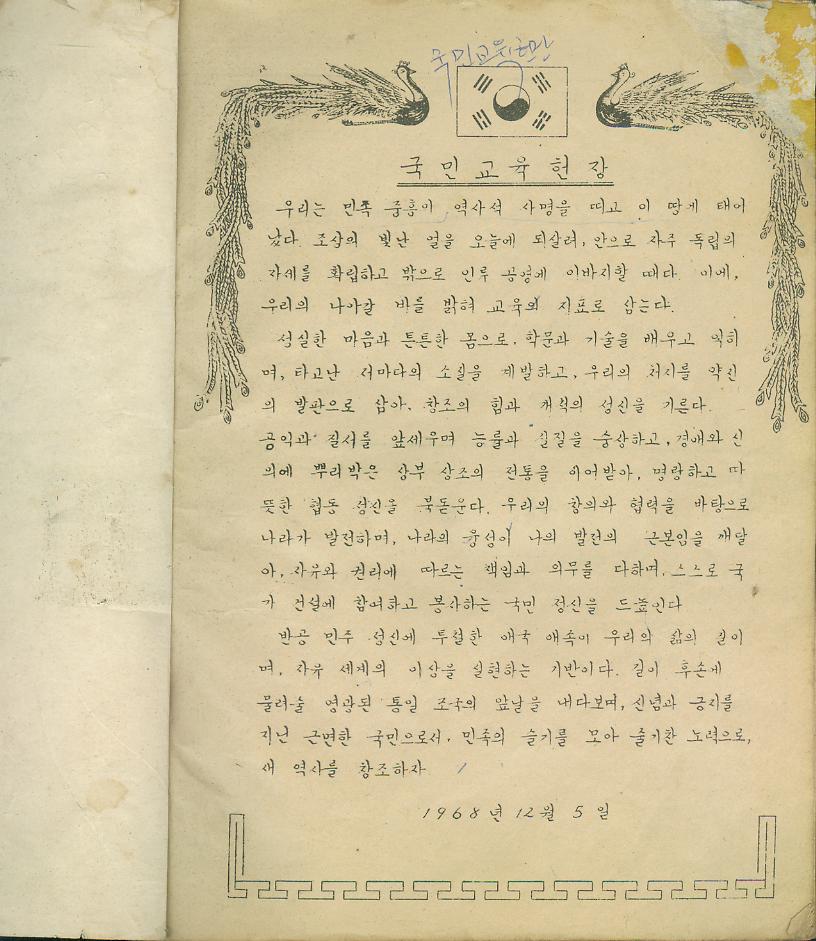 국민교육헌장
우리는 민족 중흥의 역사적 사명을 띠고 이 땅에 태어
났다. 조상의 빛난 얼을 오늘에 되살려, 안으로 자주 독립의
자세를 확립하고 밖으로 인류 공영에 이바지할 때다. 이에,
우리의 나아갈 바를 밝혀 교육의 지표로 삼는다.
성실한 마음과 튼튼한 몸으로. 학문과 기술을 배우고 익히
며, 타고난 저마다의 소질을 계발하고, 우리의 처지를 약진
의 발판으로 삼아. 창조의 힘과 개척의 정신을 기른다.
공익과 질서를 앞세우며 능률과 실질을 숭상하고, 경애와 신
의에 뿌리박은 상부 상조의 전통을 이어받아, 명랑하고 따
뜻한 협동 정신을 북돋운다. 우리의 창의와 협력을 바탕으로
나라가 발전하며, 나라의 융성이 나의 발전의 근본임을 깨달
아, 자유와 권리에 따르는 책임과 의무를 다하며, 스스로 국
가 건설에 참여하고 봉사하는 국민 정신을 드높인다
반공 민주 정신에 투철한 애국 애족이 우리의 삶의 길이
며, 자유 세계의 이상을 실현하는 기반이다. 길이 후손에
물려줄 영광된 통일 조국의 앞날을 내다보며, 신념과 긍지를
지닌 근면한 국민으로서. 민족의 슬기를 모아 줄기찬 노력으로,
새 역사를 창조하자
1968년 12월 5일